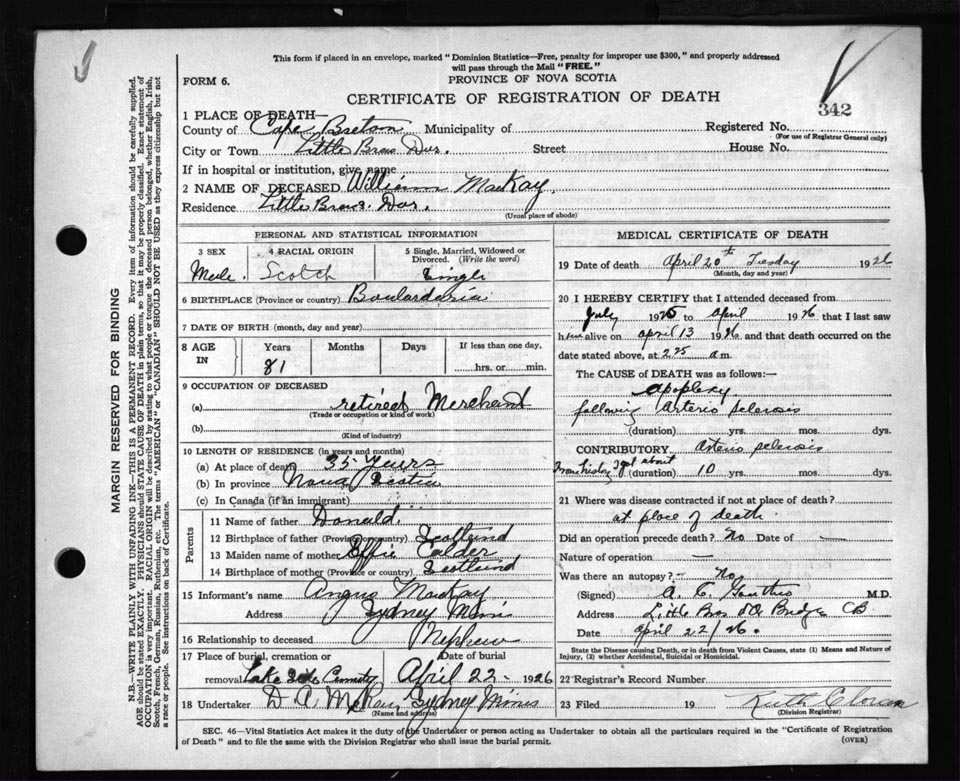 This form if placed in an envelope, marked "Dominion Statistics—Free, penalty for improper use $300," and properly addressed
will pass through the Mail "FREE."
FORM 6.
PROVINCE OF NOVA SCOTIA
CERTIFICATE OF REGISTRATION OF DEATH
342
1 PLACE OF DEATH—
County of Cape Breton Municipality of Registered No.
(For use of Registrar General only)
City or Town Little Bras Dor. Street House No.
If in hospital or institution, give name
2 NAME OF DECEASED William MacKay,
Residence Little Bras. Dor.
(Usual place of abode)
PERSONAL AND STATISTICAL INFORMATION
3 SEX
4 RACIAL ORIGIN
5 Single, Married, Widowed or
Divorced. (Write the word)
Male. Scotch Single
6 BIRTHPLACE (Province or country) Boulardarie
7 DATE OF BIRTH (month, day and year)
8 AGE
IN
Years Months Days If less than one day,
81 hrs. or min.
9 OCCUPATION OF DECEASED
(a) retired Merchant
(Trade or occupation or kind of work)
(b)
(Kind of industry)
10 LENGTH OF RESIDENCE (in years and months)
(a) At place of death 35 years
(b) In province Nova Scotia
(c) In Canada (if an immigrant)
Parents
11 Name of father Donald.
12 Birthplace of father (Province or country) Scotland
13 Maiden name of mother Effie Calder
14 Birthplace of mother (Province or country) Scotland
15 Informant's name Angus MacKay
Address Sydney Mines
16 Relationship to deceased Nephew
17 Place of burial, cremation or Date of burial
removal Lake Side Cemetery April 22 - 1926
18 Undertaker D A Sydney Mines
(Name and address)
MEDICAL CERTIFICATE OF DEATH
19 Date of death April 20th Tuesday 1926
(Month, day and year)
20 I HEREBY CERTIFY that I attended deceased from
July 1925 to April 1926 that I last saw
him alive on april 13 1926 and that death occurred on the
date stated above, at 2.25 a.m.
The CAUSE of DEATH was as follows:—
apoplexy
following Arterio sclerosis
(duration) yrs. mos. dys.
CONTRIBUTORY Arterio sclerosis
From history I got about (duration) 10 yrs. mos. dys.
21 Where was disease contracted if not at place of death?
at place of death.
Did an operation precede death? No Date of —
Nature of operation —
Was there an autopsy? — No
(Signed) A. C. M.D.
Address Little Bras d'Or Bridge CB
Date april 22/26.
State the Disease causing Death, or in death from Violent Causes, state (1) Means and Nature of
Injury, (2) whether Accidental, Suicidal or Homicidal.
22 Registrar's Record Number
23 Filed 19 Ruth
(Division Registrar)
SEC. 46—Vital Statistics Act makes it the duty of the Undertaker or person acting as Undertaker to obtain all the particulars required in the "Certificate of Registration
of Death" and to file the same with the Division Registrar who shall issue the burial permit.
(OVER)
MARGIN RESERVED FOR BINDING
N.B.—WRITE PLAINLY WITH UNFADING INK—THIS IS A PERMANENT RECORD. Every item of information should be carefully supplied.
AGE should be stated EXACTLY. PHYSICIANS should STATE CAUSE OF DEATH in plain terms, so that it may be properly classified. Exact statement of
OCCUPATION is very important. RACIAL ORIGIN will be described by stating to what people or tongue the deceased person belonged, whether English, Irish,
Scotch, French, German, Russian, Ruthenian, etc. The terms "AMERICAN" or "CANADIAN" SHOULD NOT BE USED as they express citizenship but not
a race or people. See instructions on back of Certificate.